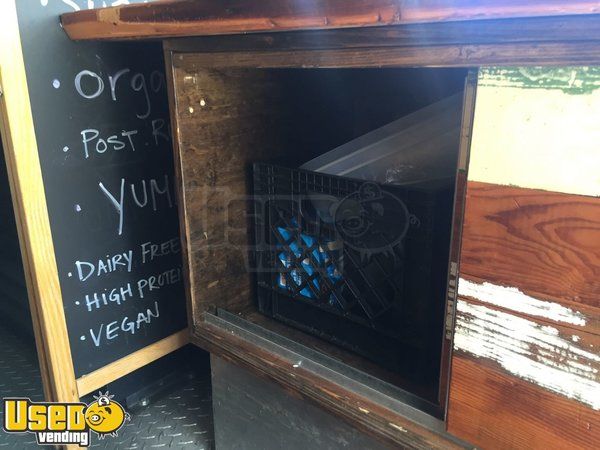 POST. R
YUM
DAIRY FREE
HIGH PROTEIN
VEGAN
USED
vending